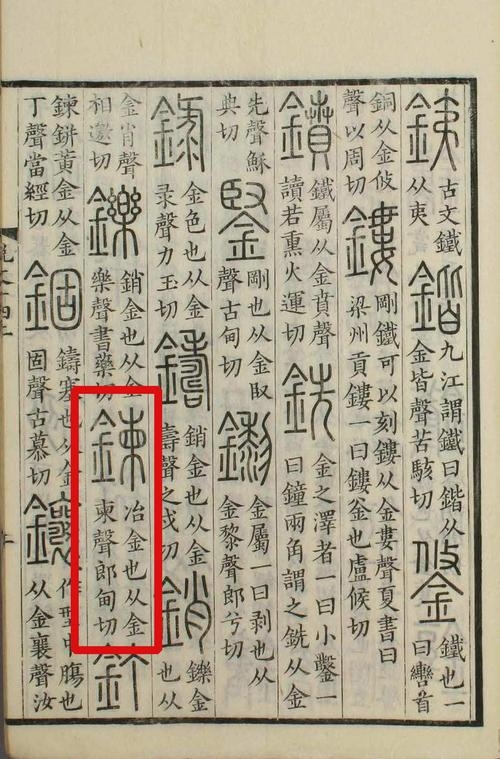 銕古文鐵从夷鍇九江謂鐵曰鍇从金皆聲苦駭切鋚鐵也一曰轡首
銅从金攸聲以周切鏤剛鐵可以刻鏤从金婁聲夏書曰梁州貢鏤一曰鏤釜也盧候切
鐼鐵屬从金賁聲讀若熏火運切銑金之澤者一曰小鑿一曰鐘兩角謂之銑从金
先聲穌典切鋻剛也从金臤聲古甸切鑗金屬一曰剥也从金黎聲郎兮切
錄金色也从金录聲力玉切鑄銷金也从金壽聲之戍切銷鑠金也从
金肖聲相邀切鑠銷金也从金樂聲書藥切鍊冶金也从金柬聲郎甸切釘
鍊鉼黃金从金丁聲當經切錮鑄塞也从金固聲古慕切鑲作型中腸也从金襄聲汝
說文十四上